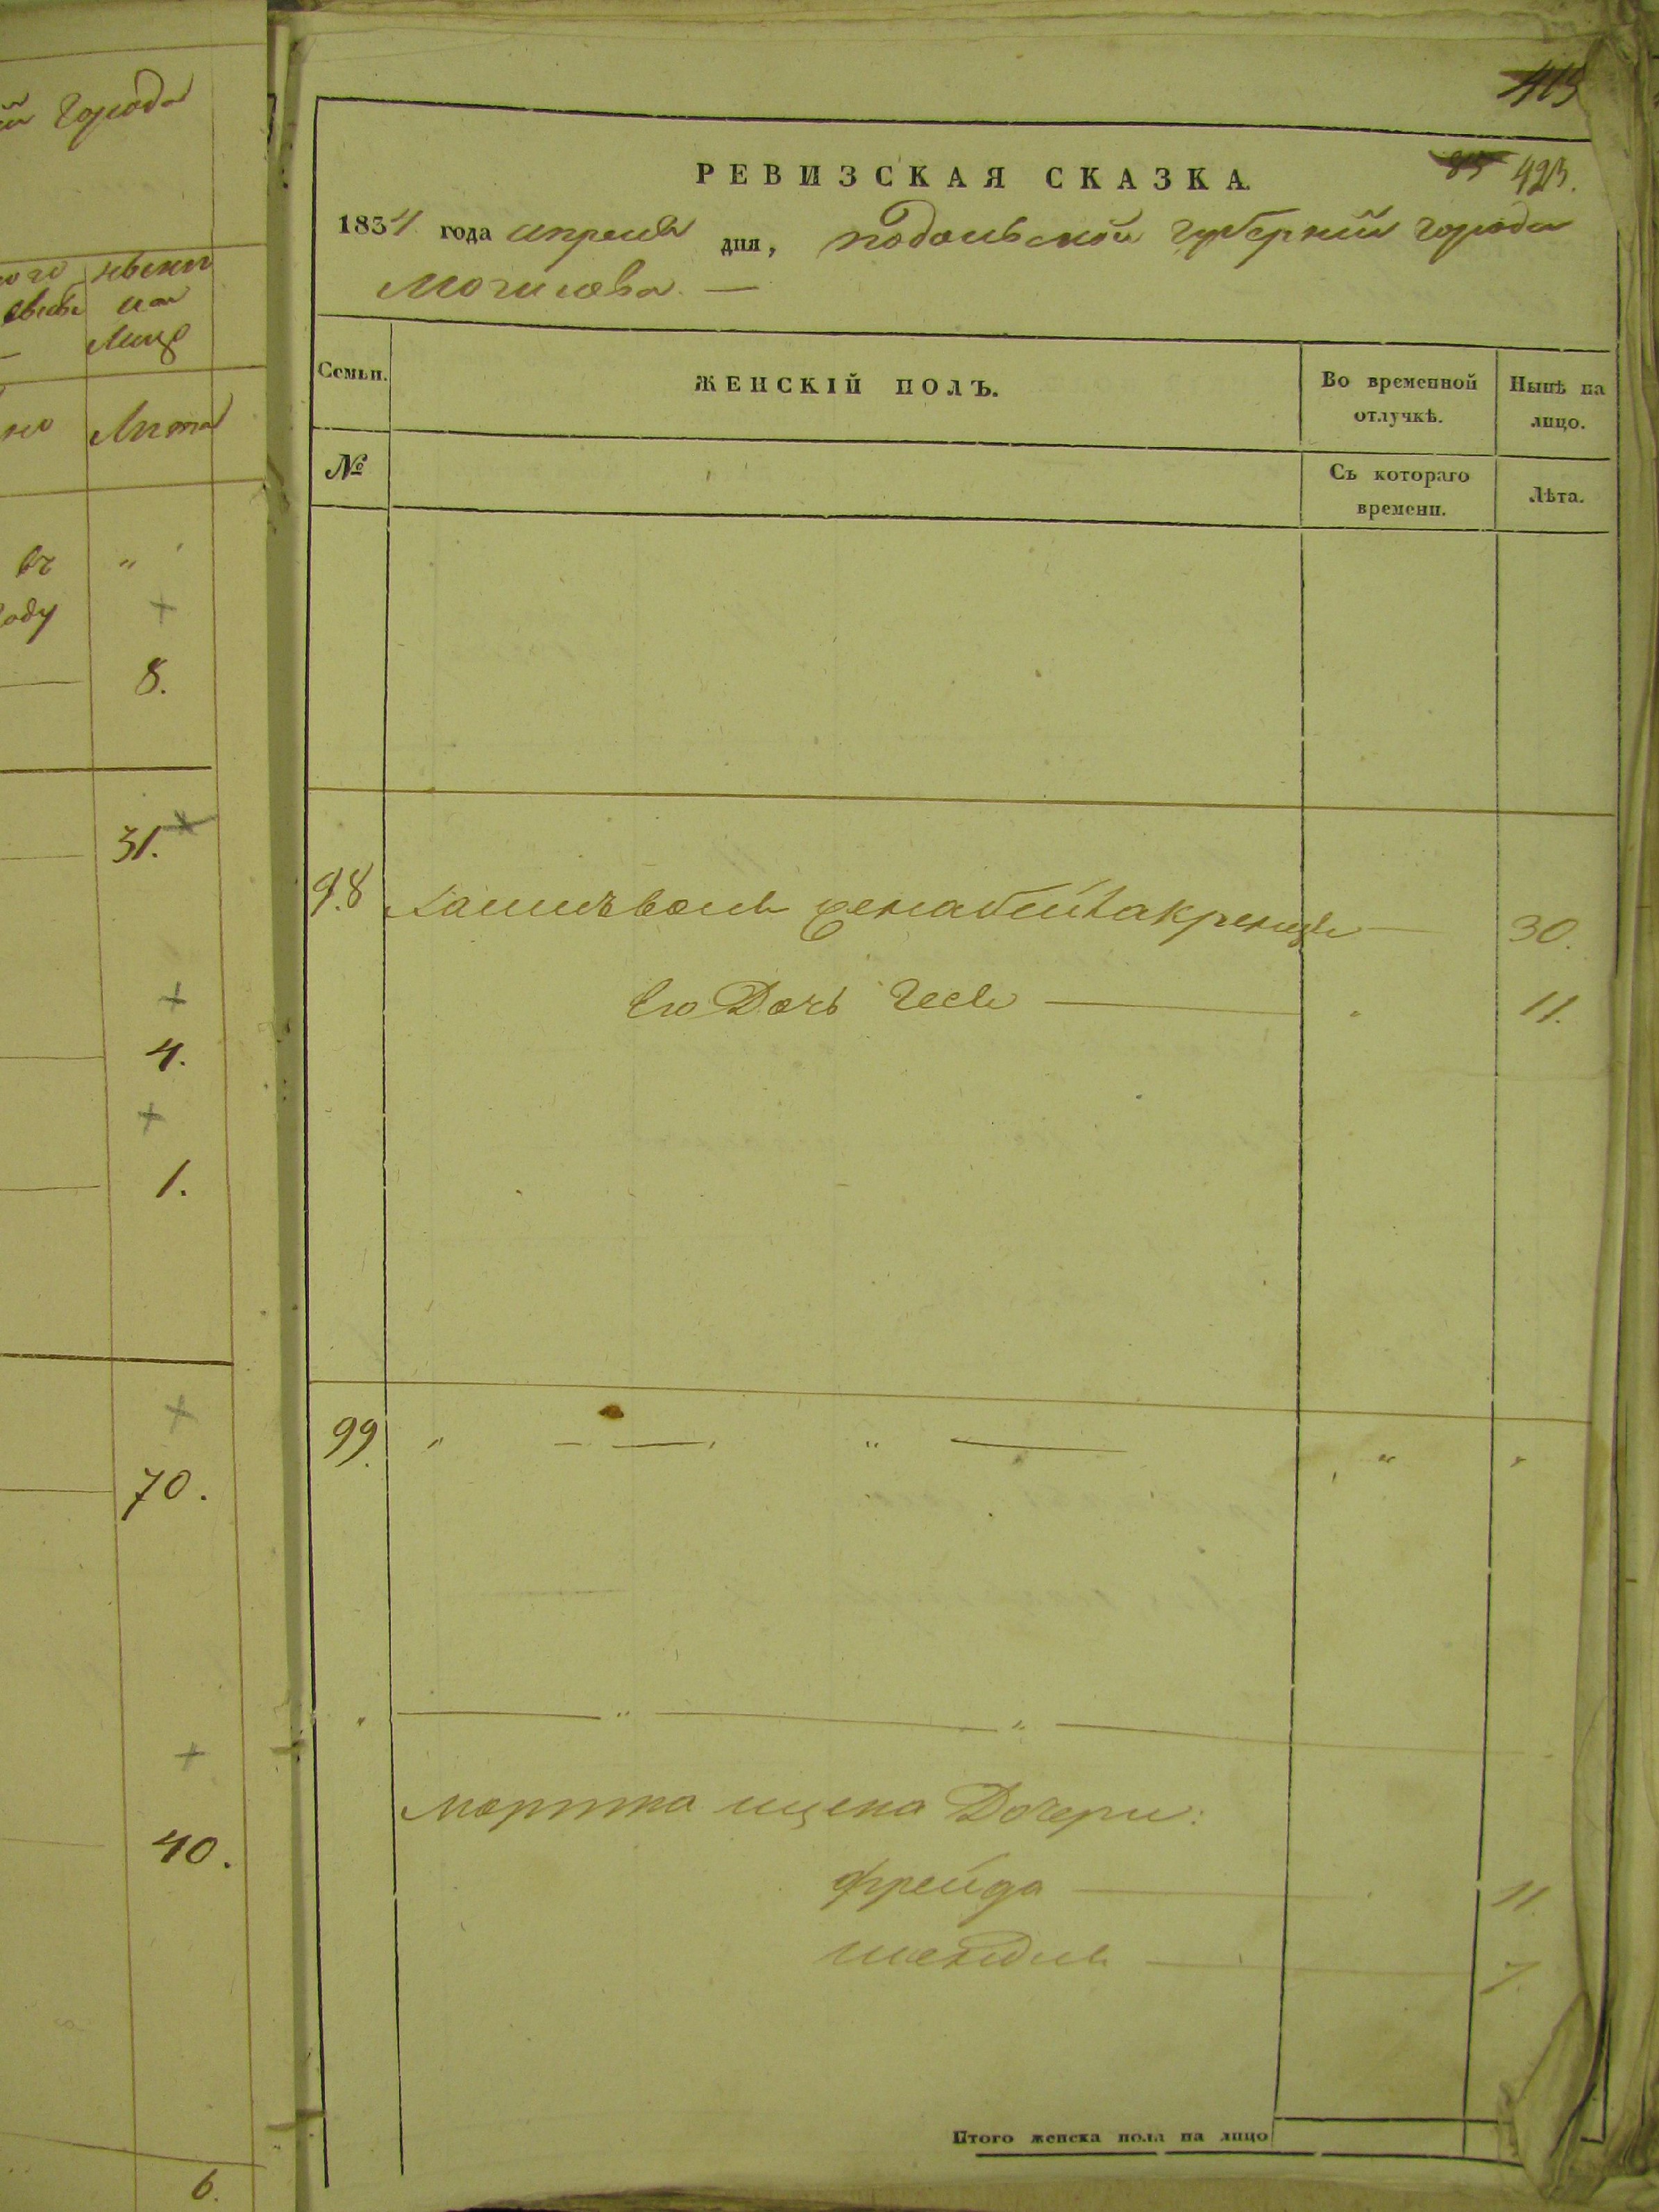 й города
нынѣ
на
лицо
Лѣта
въ "
году
8.
31.
4.
1.
70.
40.
6.
415
85 423.
РЕВИЗСКАЯ СКАЗКА.
1834 года апреля дня, подольской губернии города
Могилева. —
Семьи. ЖЕНСКІЙ ПОЛЪ. Во временной отлучкѣ. Нынѣ на лицо.
№ Съ котораго времени. Лѣта.
98 30.
его Дочь Геся — 11.
99. " — " — " "
" — " — " —
Мортка ицека Дочери:
фрейда — 11.
шендля — 7
Итого женска пола на лицо